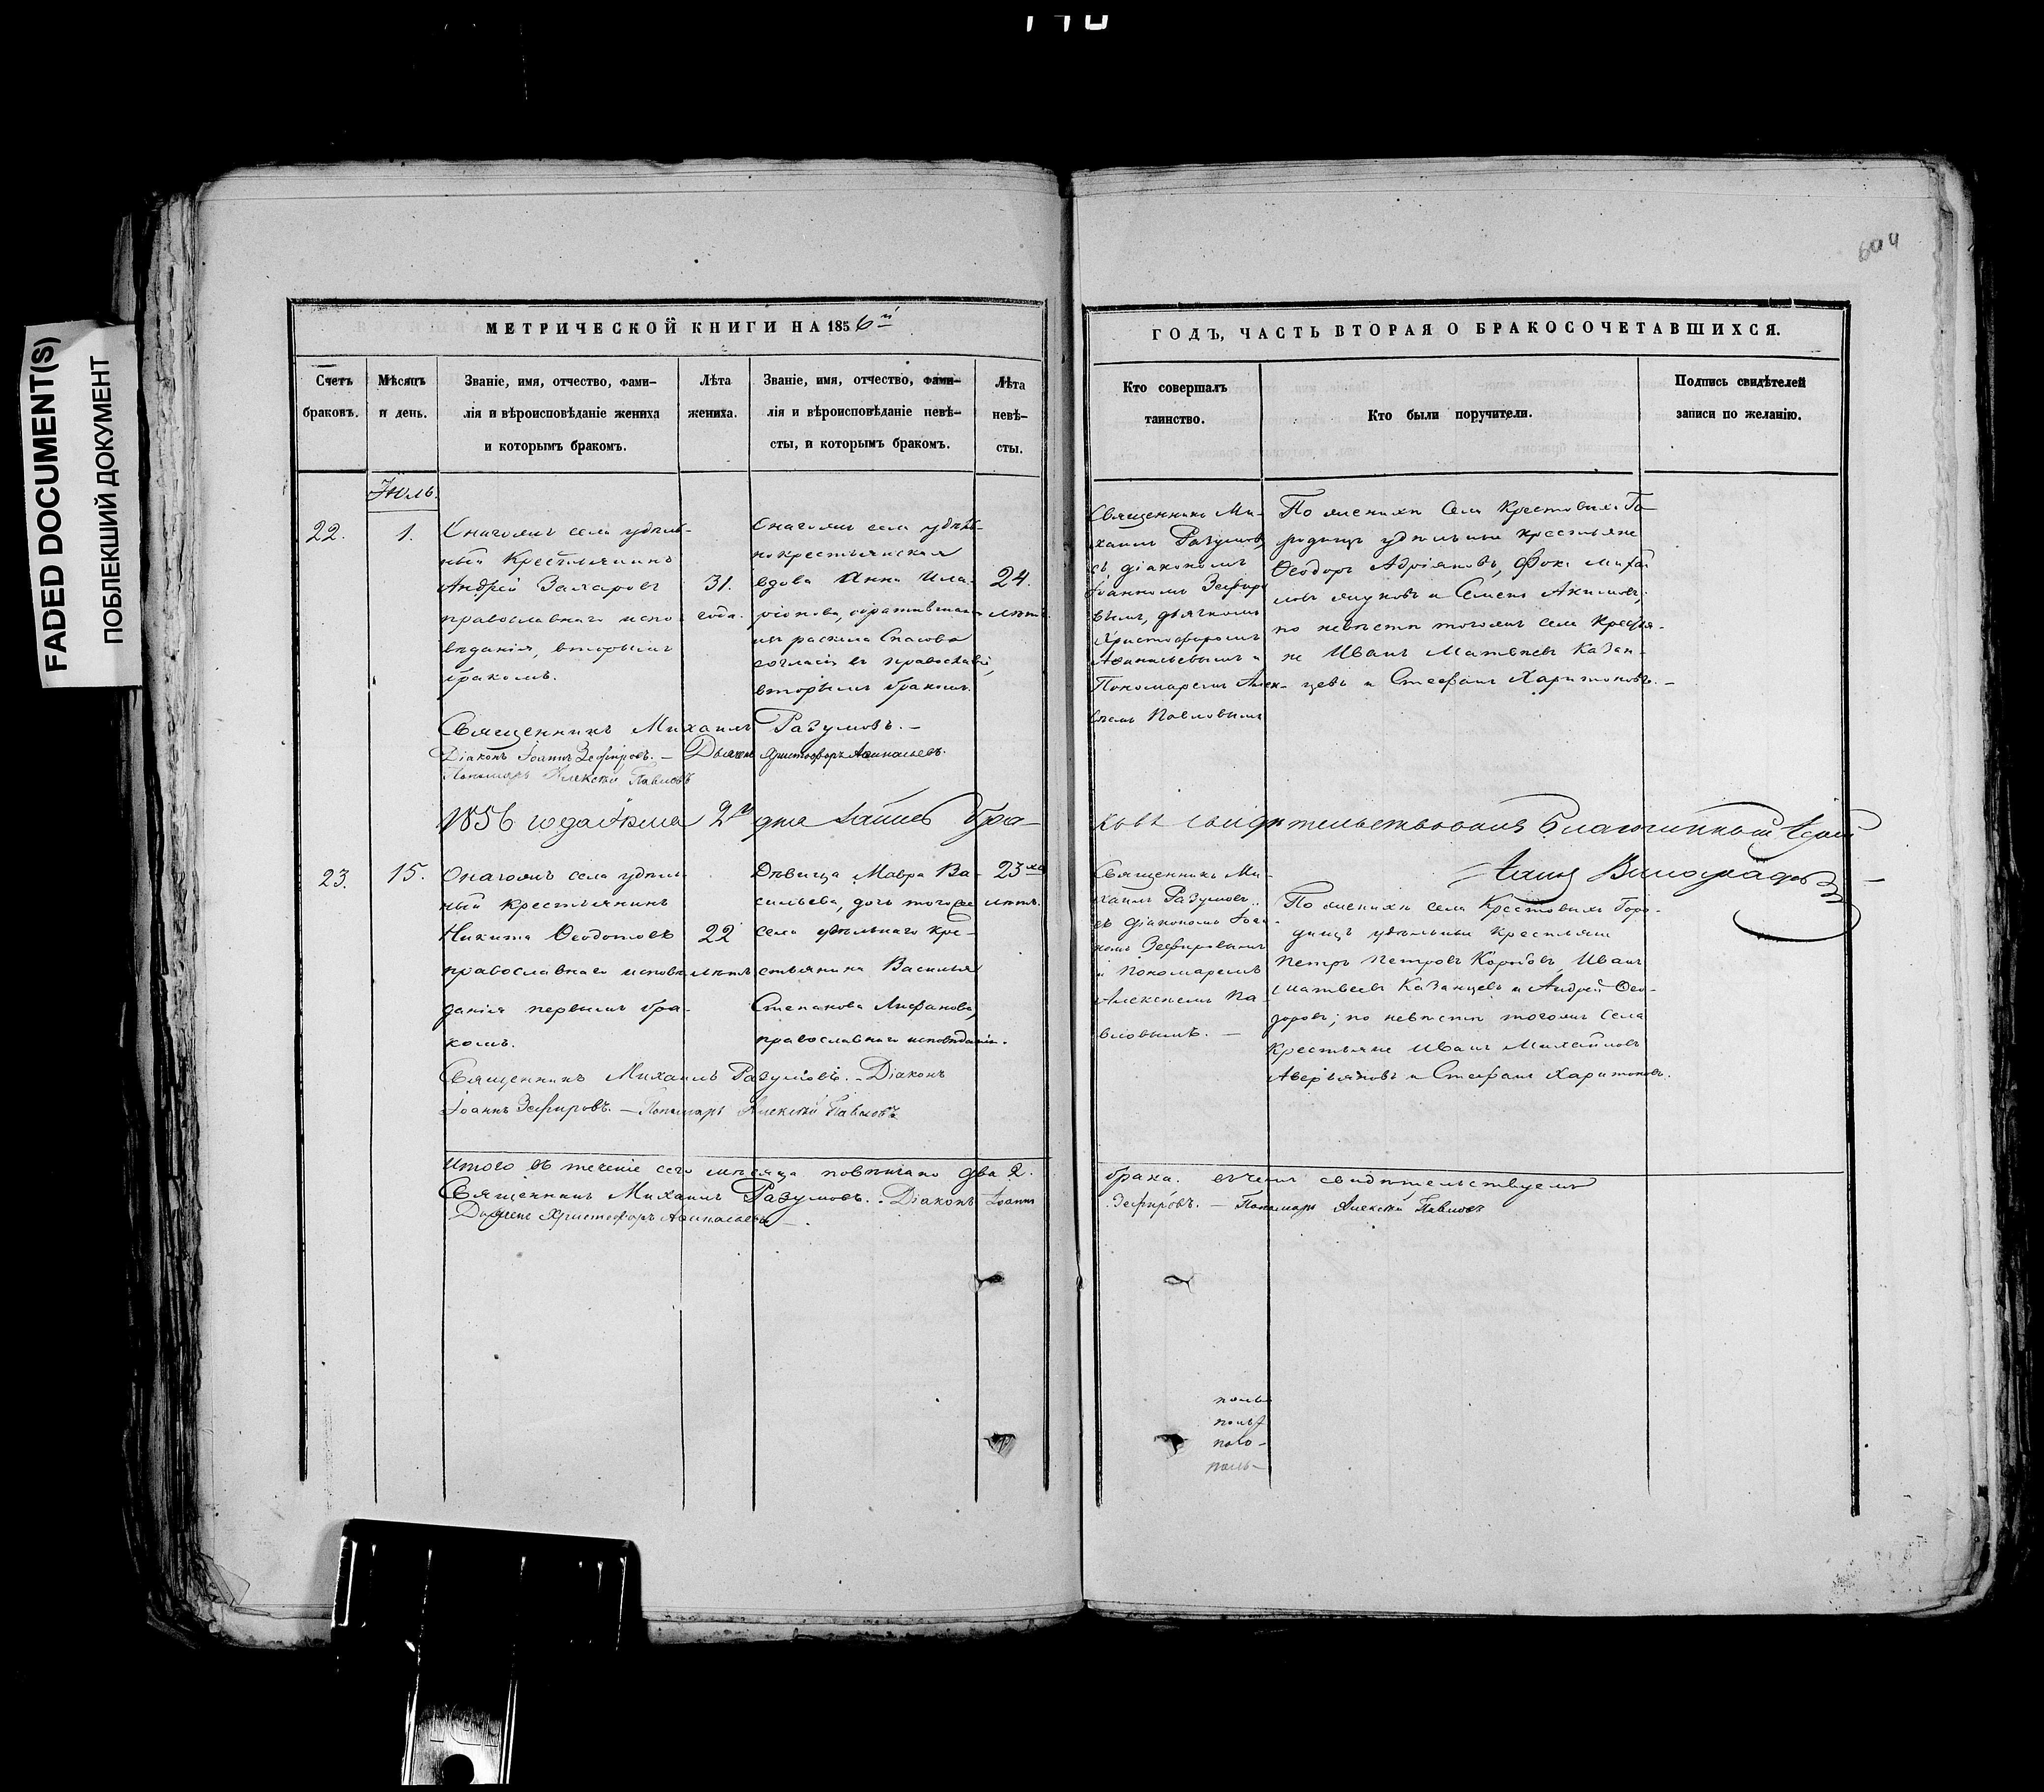 FADED DOCUMENT(S)
ПОБЛЕКШИЙ ДОКУМЕНТ
604
МЕТРИЧЕСКОЙ КНИГИ НА 1856й
Счетъ
браковъ.
Мѣсяцъ
и день.
Званіе, имя, отчество, фами-
лія и вѣроисповѣданіе жениха
и которымъ бракомъ.
Лѣта
жениха.
Званіе, имя, отчество, фами-
лія и вѣроисповѣданіе невѣ-
сты, и которымъ бракомъ.
Лѣта
невѣ-
сты.
ГОДЪ, ЧАСТЬ ВТОРАЯ О БРАКОСОЧЕТАВШИХСЯ.
Кто совершалъ
таинство.
Кто были поручители.
Подпись свидѣтелей
записи по желанію.
22.
1.
села удѣль-
ный Крестьянинъ
Андрей Захаровъ
православнаго испо-
вѣданія, вторымъ
бракомъ.
31.
года.
села удѣль-
нокрестьянская
вдова Анна Ила-
ріонова, обратившаяся
изъ раскола Спасова
согласія въ православіе,
вторымъ бракомъ.
24.
лѣтъ
Священникъ Ми-
хаилъ Разумовъ,
съ діакономъ
Іоанномъ Зефиро
вымъ, дьячкомъ
Христофоромъ
Аѳанасьевымъ и
Пономаремъ Алек-
сѣемъ Павловымъ
По женихѣ села Крестовыхъ Го-
родищъ удѣльные крестьяне
Ѳеодоръ Адріановъ, Фока Михай
ловъ и Семенъ Акимовъ;
по невѣстѣ тогожъ села крестья-
не Иванъ Матвѣевъ Казан-
цевъ и Стефанъ Харитоновъ. —
Священникъ Михаилъ Разумовъ. —
Діаконъ Іоаннъ Зефировъ. — Дьячекъ Христофоръ Аѳанасьевъ.
Пономарь Алексѣй Павловъ
1856 года 2го дня запись бра-
ковъ свидѣтельствовалъ Благочинный
Виноградовъ
23.
15.
Онагожъ села удѣль-
ный крестьянинъ
Никита Ѳеодотовъ
православнаго исповѣ
данія первымъ бра-
комъ.
22
лѣтъ
Дѣвица Мавра Ва-
сильева, дочь тогоже
села удѣльнаго кре-
стьянина Василья
Степанова
православнаго исповѣданія.
23хъ
лѣтъ.
Священникъ Ми-
хаилъ Разумовъ
съ діакономъ Іоан-
номъ Зефировымъ
и пономаремъ
Алексѣемъ Па-
вловымъ. —
По женихѣ села Крестовыхъ Горо-
дищъ удѣльные крестьяне
Петръ Петровъ Иванъ
Матвеевъ Казанцевъ и Андрей Ѳео-
доровъ; по невѣстѣ тогожъ села
крестьяне Иванъ Михайловъ
Аверьяновъ и Стефанъ Харитоновъ.
Священникъ Михаилъ Разумовъ. — Діаконъ
Іоаннъ Зефировъ. — Пономарь Алексѣй Павловъ
Итого въ теченіе сего мѣсяца повѣнчано два 2.
брака. въ чемъ свидѣтельствуемъ
Священникъ Михаилъ Разумовъ. Діаконъ Іоаннъ
Зефировъ. — Пономарь Алексѣй Павловъ
Дьячекъ Христофоръ Аѳанасьевъ —